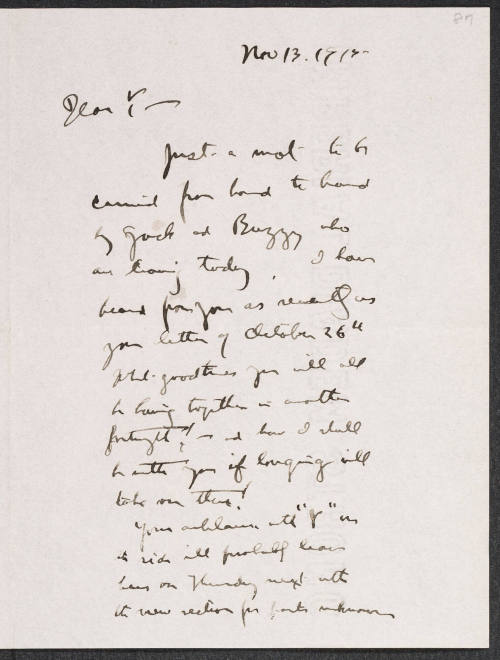 87
Nov 13. 191
Dear
Just a mot to be
carried from hand to hand
by Jack and Buzzy who
are leaving today. I have
heard from you as recently as
your letter of October 26th
What good times you will all
be having together in another
fortnight! and how I shall
be with you if longing will
take me there!
Your ambulance with "Y" on
its side will probably leave
here on Thursday next with
the new section for parts unknown